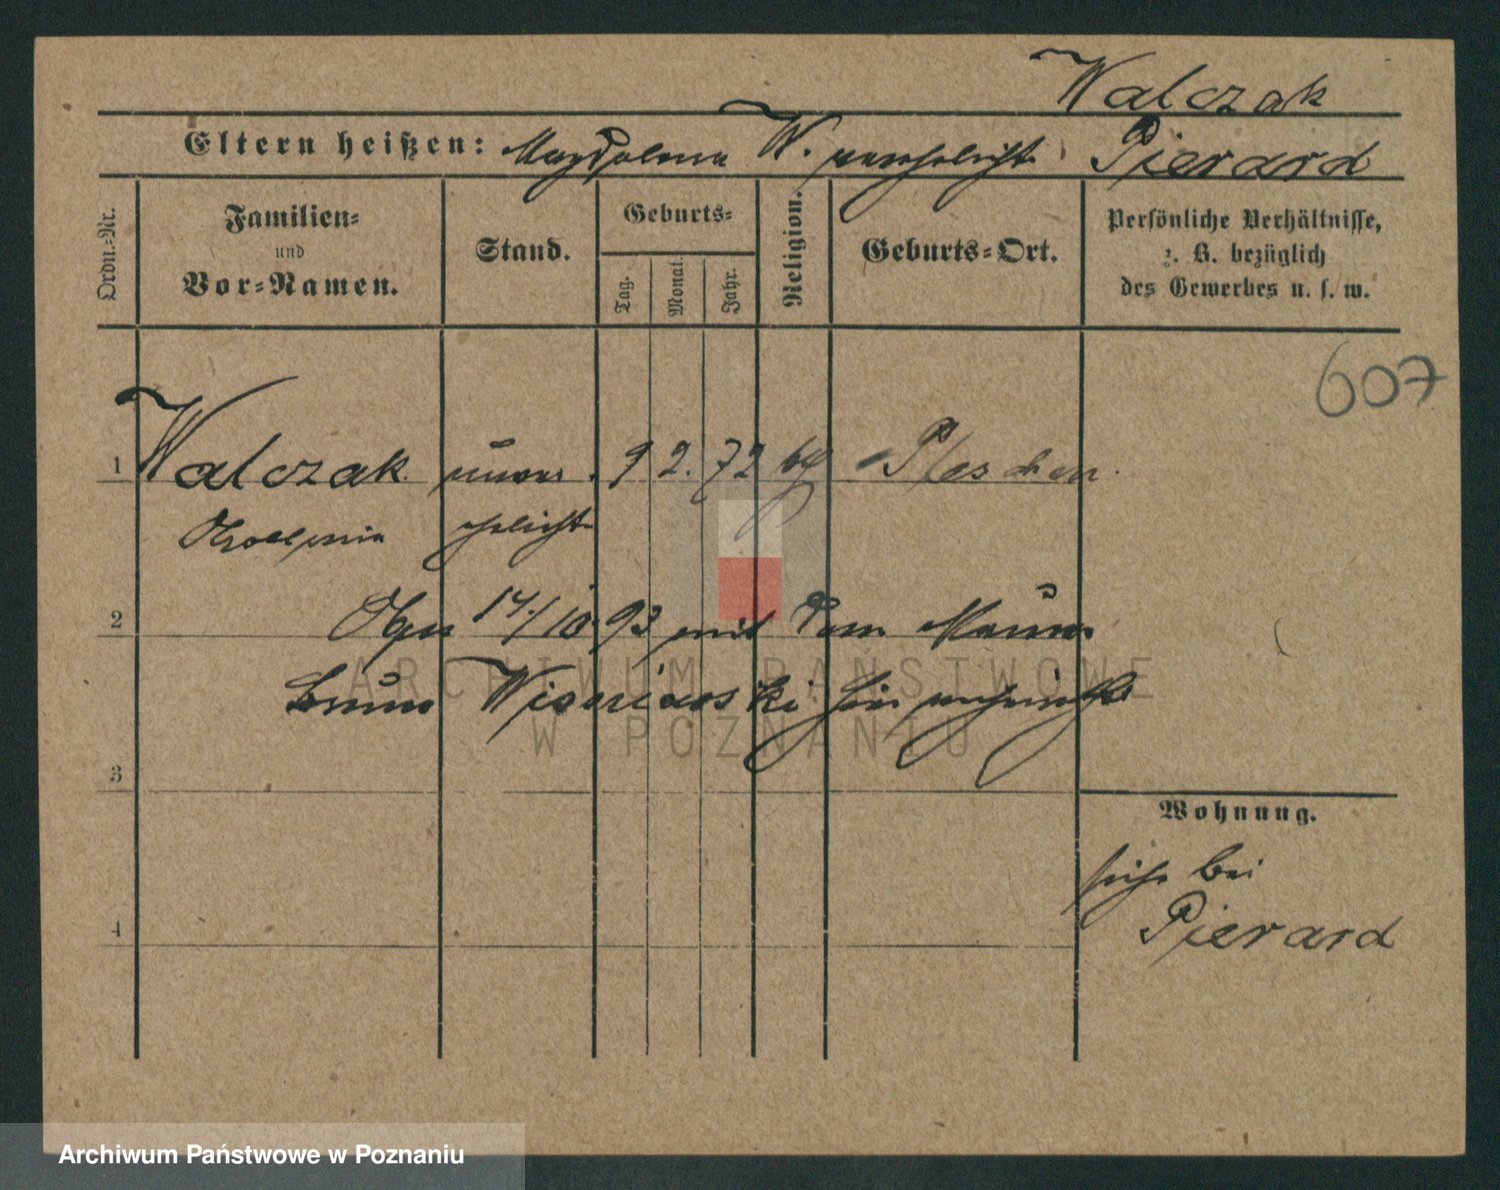 Walczak
Eltern heißen: Magdalena W. verehelicht Pierard
Ordn.-Nr.
Familien-
und
Vor-Namen.
Stand.
Geburts-
Tag.
Monat.
Jahr.
Religion.
Geburts-Ort.
Persönliche Verhältnisse,
z. B. bezüglich
des Gewerbes u. s. w.
607
1 Walczak unver 9 2. 72 Pleschen
ehelicht
2 17./10. 93 mit dem Maurer
3
Wohnung.
siehe bei
Pierard
4
ARCHIWUM PAŃSTWOWE
W POZNANIU
Archiwum Państwowe w Poznaniu